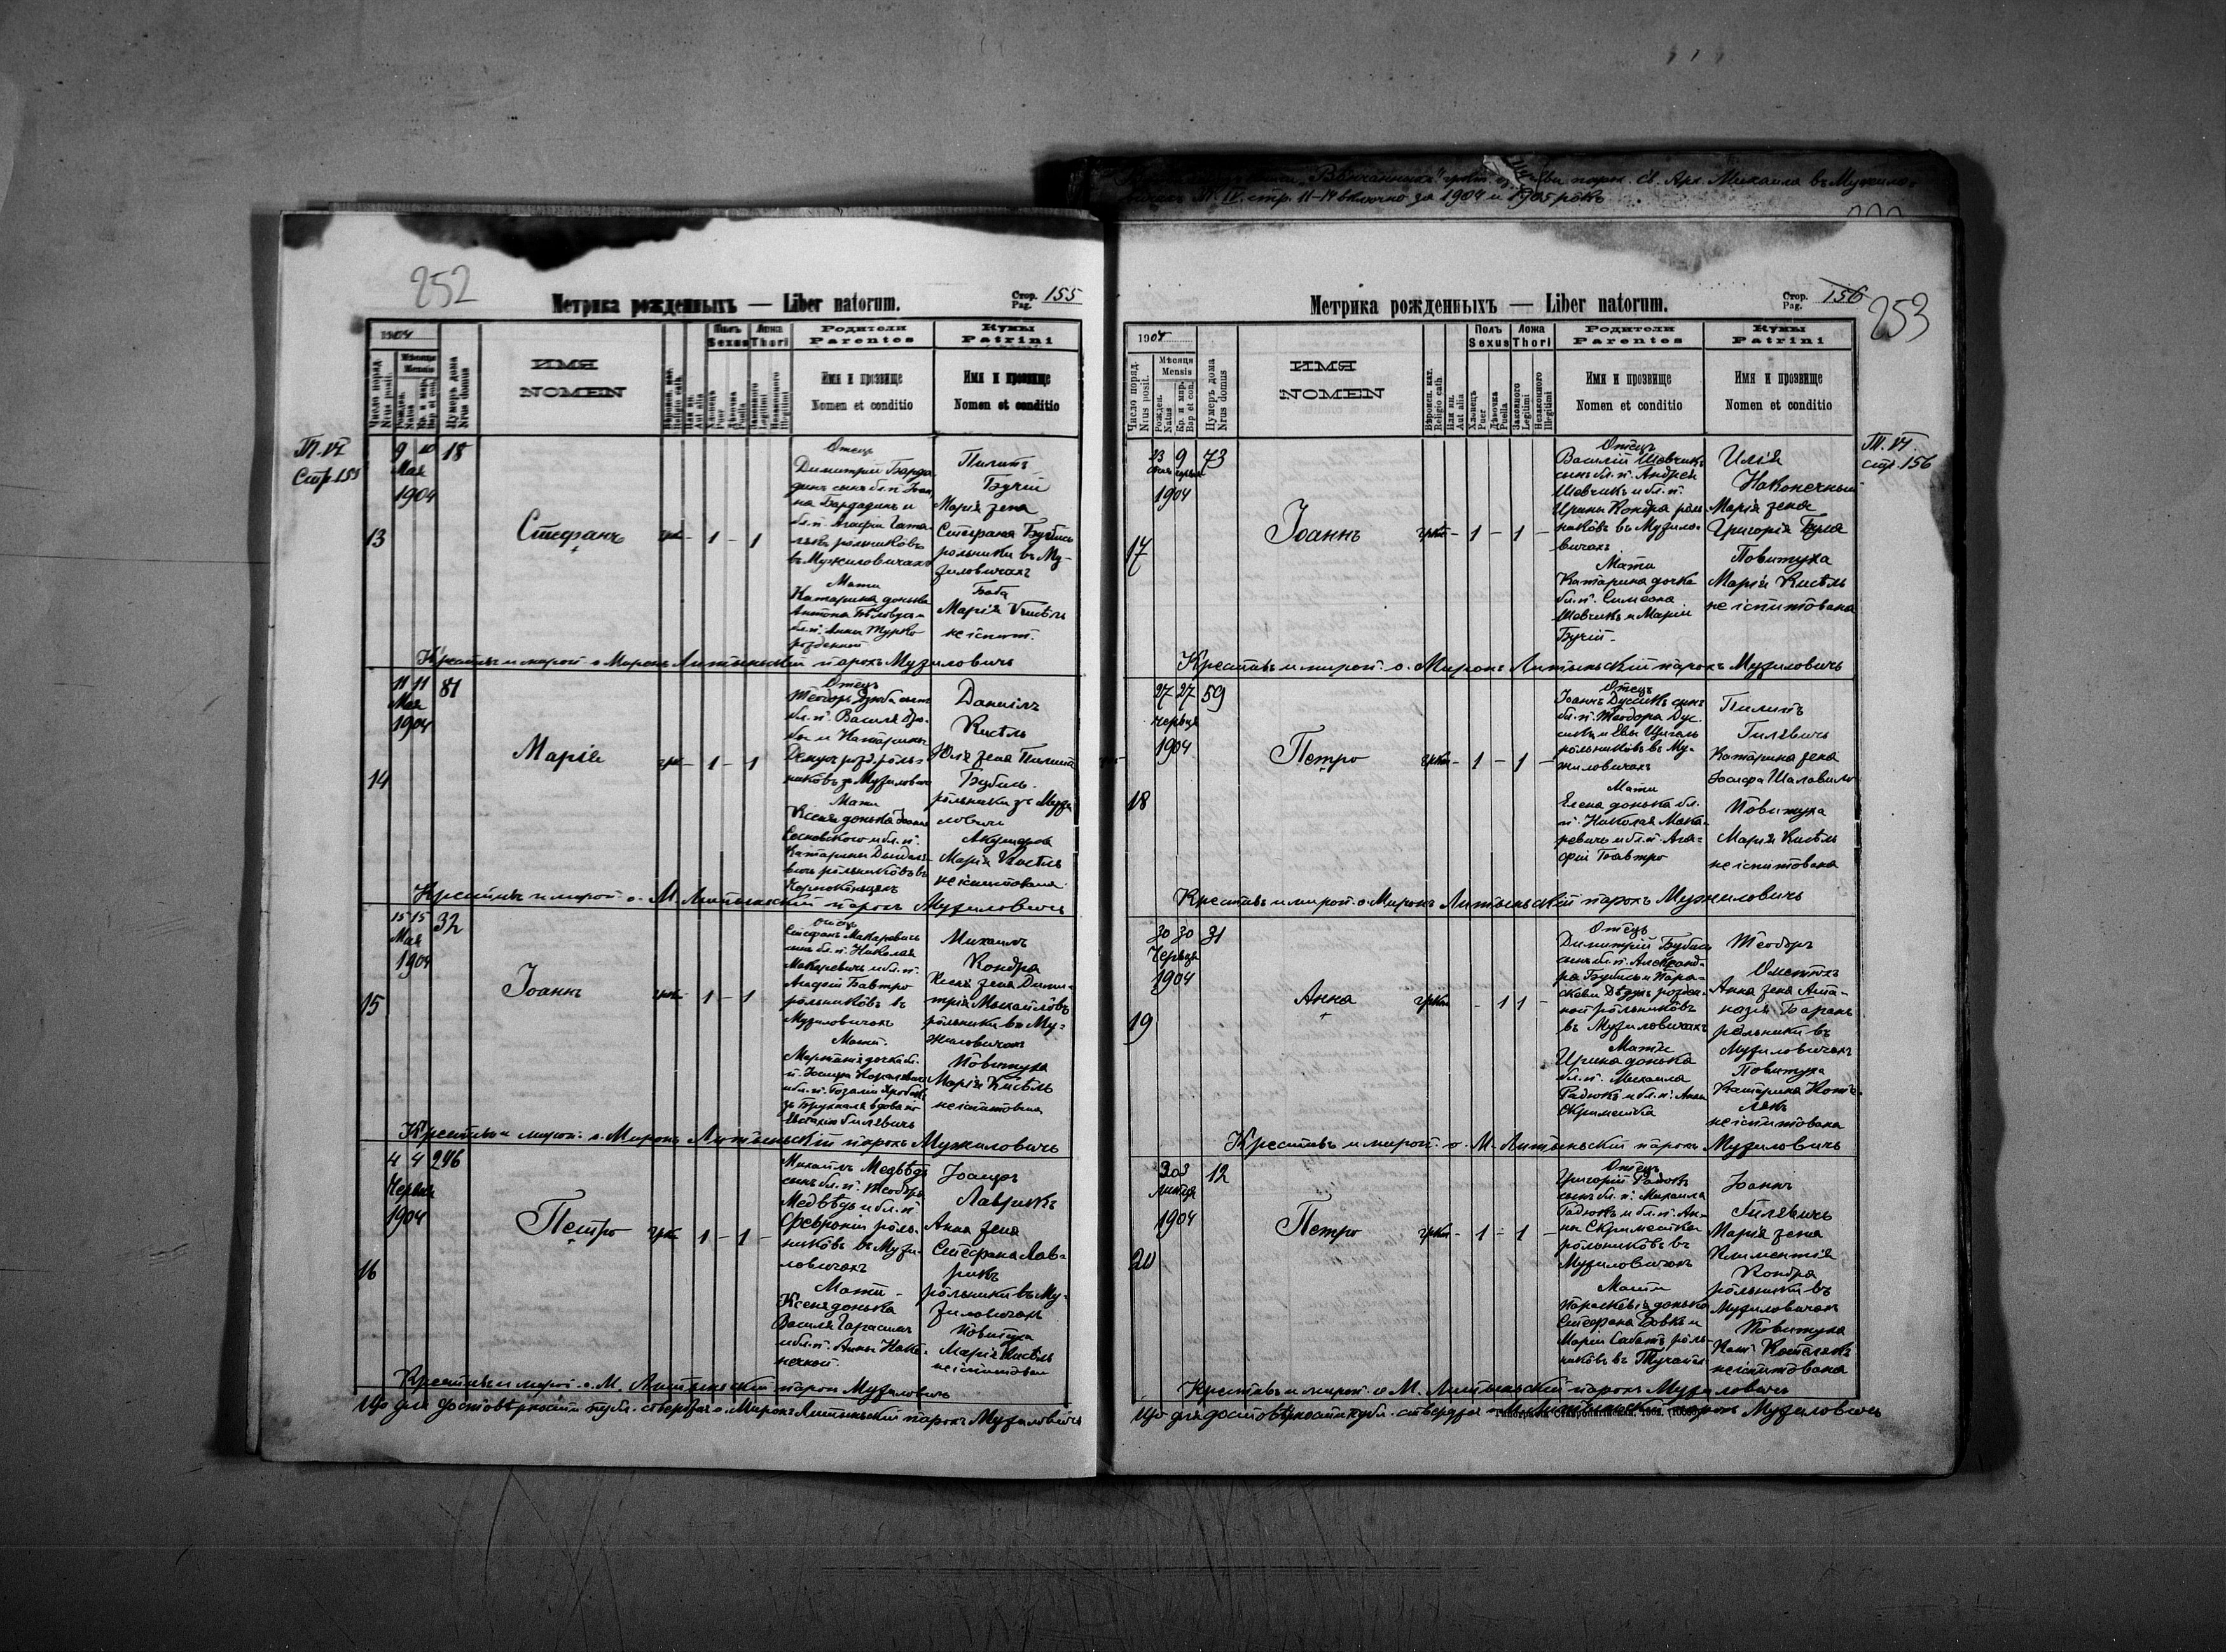 252
Метрика рожденныхъ — Liber natorum.
Стор. Pag. 155
1904
Число поряд. Nrus posit.
Мѣсяця Mensis
Рожден. Natus
Кр. и мир. Bap et con.
Нумеръ дома Nrus domus
ИМЯ
NOMEN
Вѣроисп. кат. Religio cath.
Или ин. Aut alia
Полъ Sexus
Хлопець Puer
Дѣвочка Puella
Ложа Thori
Законного Legitimi
Незаконного Illegitimi
Родители
Parentes
Имя и прозвище
Nomen et conditio
Кумы
Patrini
Имя и прозвище
Nomen et conditio
Т. VI
Стр. 155
13
9 10 18
Мая
1904
Стефанъ
1 - 1
Отець
Димитрій
на Бардадинъ и
бл. п. Агафіи
рольникôвъ
въ Мужиловичахъ
Мати
Катарина донька
Антона
бл. п. Анны Турко
рожденной
Пилипъ
Бучій
Марія жена
Стефана Бубись
рольники въ Му-
жиловичахъ
Баба
Марія Кисѣль
не іспит.
Крестивъ и мѵроп. о Миронъ Литыньскій парохъ Мужиловичь
14
11 11 81
Мая
1904
Марія
1 - 1
Отець
Теодоръ Дзюба сынъ
бл. п. Василя Дзю-
бы и Катарины
рожд. роль-
никôвъ зъ Мужиловичъ
Мати
Ксеня донька Іоанна
Сосновского и бл. п.
Катарины
рольникôвъ въ
Даниілъ
Кисѣль
Юлія жена Пилипа
Бубись
рольники зъ Мужи
ловичъ
Акушерка
Марія Кисѣль
не іспитована
Крестивъ и мѵроп о. М. Литыньскій парохъ Мужиловичь
15
15 15 32
Мая
1904
Іоаннъ
1 - 1
Отець
Стефанъ Макаревичь
сынъ бл. п. Николая
Макаревичь и бл. п.
Агафіи Бавтро
рольникôвъ въ
Мужиловичахъ
Мати
дочка бл.
п. Іосифа
и бл. п. Розалія
вдова по
Михаилъ
Кондра
Ксеня жена Дими-
трія Михайлôвъ
рольники въ Му-
жиловичахъ
Повитуха
Марія Кисѣль
не іспитована
Крестивъ и мѵроп. о. Миронъ Литыньскій парохъ Мужиловичь
16
4 4 246
Червця
1904
Петро
1 - 1
Михаилъ Медвѣдь
сынъ бл. п. Теодора
Медвѣдь и бл. п.
Февроніи роль-
никôвъ въ Мужи-
ловичахъ
Мати
Ксеня донька
Василя Гарасимъ
и бл. п. Анны Нако-
нечной
Іосифъ
Лаврикъ
Анна жена
Стефана Лав-
рикъ
рольники въ Му-
жиловичахъ
Повитуха
Марія Кисѣль
не іспитована
Крестивъ и мѵроп. о. М. Литыньскій парох Мужиловичь
Що для достовѣрности публ. ствердж. о. Миронъ Литыньскій парохъ Мужиловичь
св. Арх. Михаила въ Мужило-
IV. стр. 11-14 включно за 1904 и 1905 рôкъ
Метрика рожденныхъ — Liber natorum.
Стор. Pag. 156
253
1904
Число поряд. Nrus posit.
Мѣсяця Mensis
Рожден. Natus
Кр. и мир. Bap et con.
Нумеръ дома Nrus domus
ИМЯ
NOMEN
Вѣроисп. кат. Religio cath.
Или ин. Aut alia
Полъ Sexus
Хлопець Puer
Дѣвочка Puella
Ложа Thori
Законного Legitimi
Незаконного Illegitimi
Родители
Parentes
Имя и прозвище
Nomen et conditio
Кумы
Patrini
Имя и прозвище
Nomen et conditio
Т. VI.
стр. 156
17
23 9 73
1904
Іоаннъ
грк - 1 - 1 -
Отець
Василій Шевчикъ
сынъ бл. п. Андрея
Шевчикъ и бл. п.
Ирины Кондра роль
никôвъ въ Мужило-
вичахъ
Мати
Катарина дочка
бл. п. Симеона
Шевчикъ и Маріи
Бучій
Илія
Наконечный
Марія жена
Григорія Буля
Повитуха
Марія Кисѣль
не іспитована
Крестивъ и мѵроп. о. Миронъ Литыньскій парохъ Мужиловичь
18
27 27 59
Червця
1904
Петро
грк - 1 - 1 -
Отець
Іоаннъ Дусикъ сынъ
бл. п. Теодора Дус.
сикъ и Евы Щигель
рольникôвъ въ Му-
жиловичахъ
Мати
Елена донька бл.
п. Николая Мака-
ревичь и бл. п. Ага-
фіи Бавтро
Пилипъ
Гилевичь
Катарина жена
Іосифа Шалавило
Повитуха
Марія Кисѣль
не іспитована
Крестивъ и мѵроп. о Миронъ Литыньскій парохъ Мужиловичь
19
30 30 31
Червця
1904
Анна
грк - 1 1 -
Отець
Димитрій Бубись
сынъ бл. п. Александ-
ра Бубись и Пара-
скеви рожден-
ной рольникôвъ
въ Мужиловичахъ
Мати
Ирина донька
бл. п. Михаила
Радюкъ и бл. п. Анны
Скрипетка
Теодоръ
Анна жена Ата-
назія Баранъ
рольники въ
Мужиловичахъ
Повитуха
Катарина Кот-
лякъ
не іспитована
Крестивъ и мѵроп. о. М. Литыньскій парохъ Мужиловичь
20
2 03 12
Липця
1904
Петро
грк - 1 - 1 -
Отець
Григорій Радюкъ
сынъ бл. п. Михаила
Радюкъ и бл. п. Ан-
ны Скрипетка
рольникôвъ въ
Мужиловичахъ
Мати
Параскевія донька
Стефана Вовкъ и
Маріи Сабатъ роль-
никôвъ въ
Іоаннъ
Гилевичь
Марія жена
Климентія
Кондра
рольники въ
Мужиловичахъ
Повитуха
Кат. Котелякъ
не іспитована
Крестивъ и мѵроп. о М. Литыньскій парохъ Мужиловичь
Що для достовѣрности публ. ствердж. о М. Литыньскій парохъ Мужиловичь